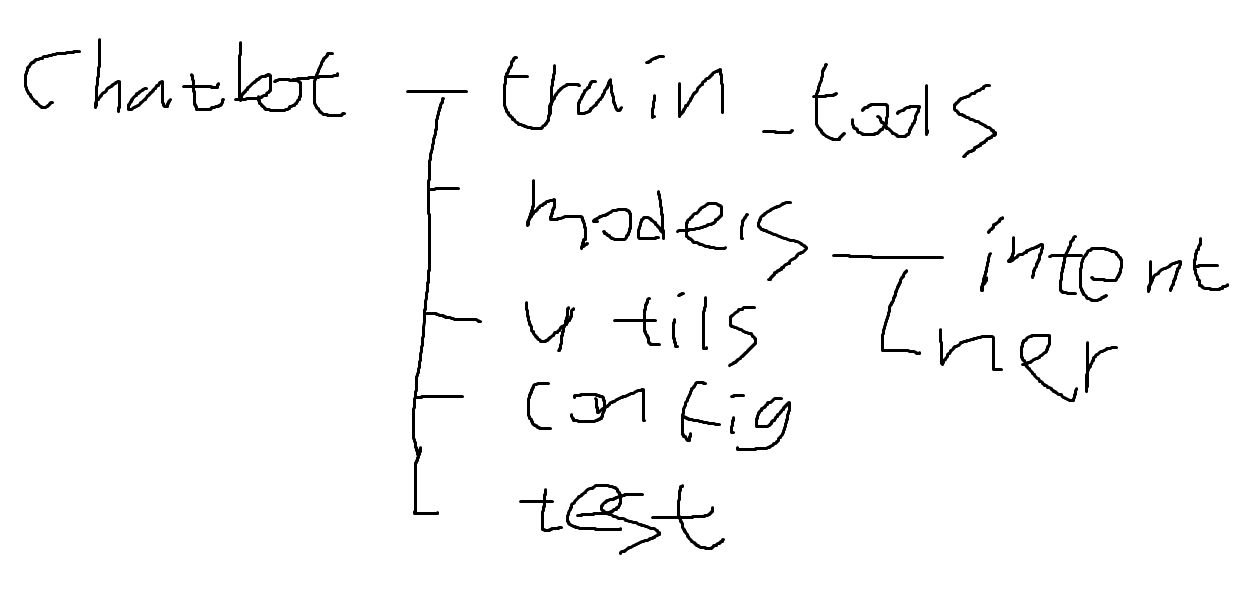 Chatbot train_tools
models intent
ner
utils
config
test